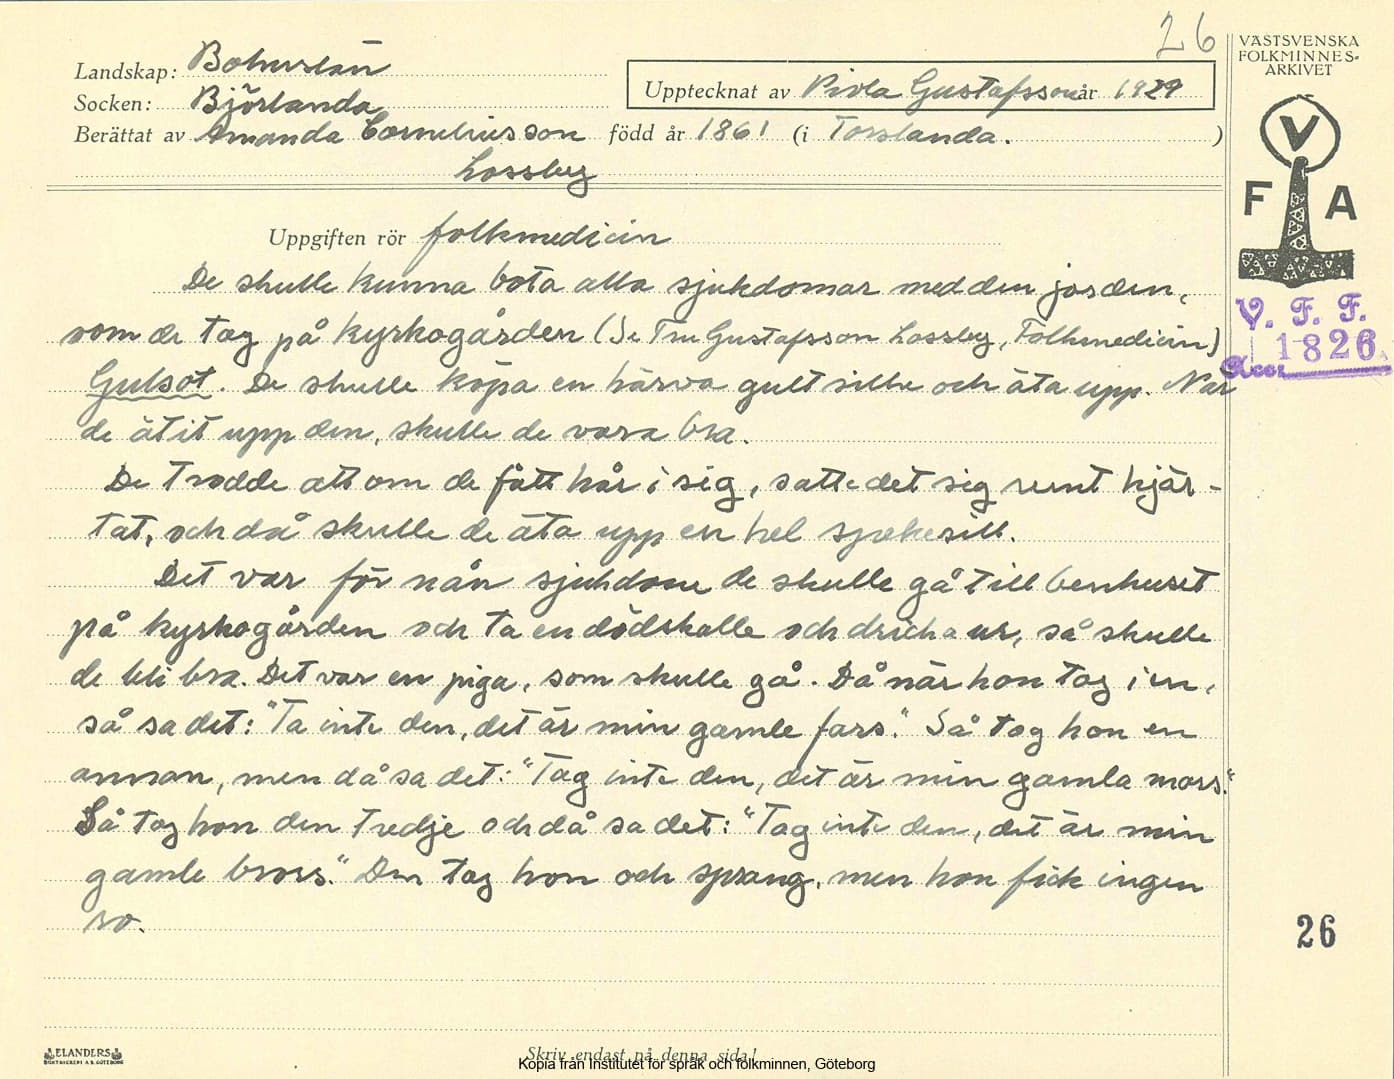 26
Landskap: Bohuslän
Socken: Björlanda
Upptecknat av Viola Gustafsson år 1929
Berättat av Amanda Corneliusson född år 1861 (i Torslanda. )
Lossby
VÄSTSVENSKA
FOLKMINNES-
ARKIVET
V
F A
Uppgiften rör folkmedicin
De skulle kunna bota alla sjukdomar med den jorden,
som de tog på kyrkogården (Se Tru Gustafsson Lossby, Folkmedicin)
V. F. F.
1826
Acc.
Gulsot. De skulle köpa en härva gult silke och äta upp. När
de ätit upp den, skulle de vara bra.
De trodde att om de fått hår i sig, satte det sig runt hjär-
tat, och då skulle de äta upp en hel spekesill.
Det var för nån sjukdom de skulle gå till benhuset
på kyrkogården och ta en dödskalle och dricka ur, så skulle
de bli bra. Det var en piga, som skulle gå. Då när hon tog i en,
så sa det: "Ta inte den, det är min gamle fars." Så tog hon en
annan, men då sa det: "Tag inte den, det är min gamla mors."
Så tog hon den tredje och då sa det: "Tag inte den, det är min
gamle brors." Den tog hon och sprang, men hon fick ingen
ro.
26
ELANDERS
BOKTRYCKERI A.B. GÖTEBORG
Skriv endast på denna sida!
Kopia från Institutet för språk och folkminnen, Göteborg